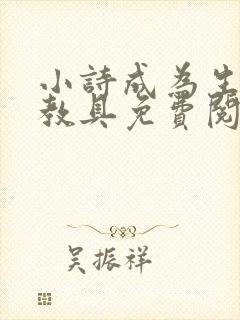 小詩成為生
教具免費閱
吴振祥